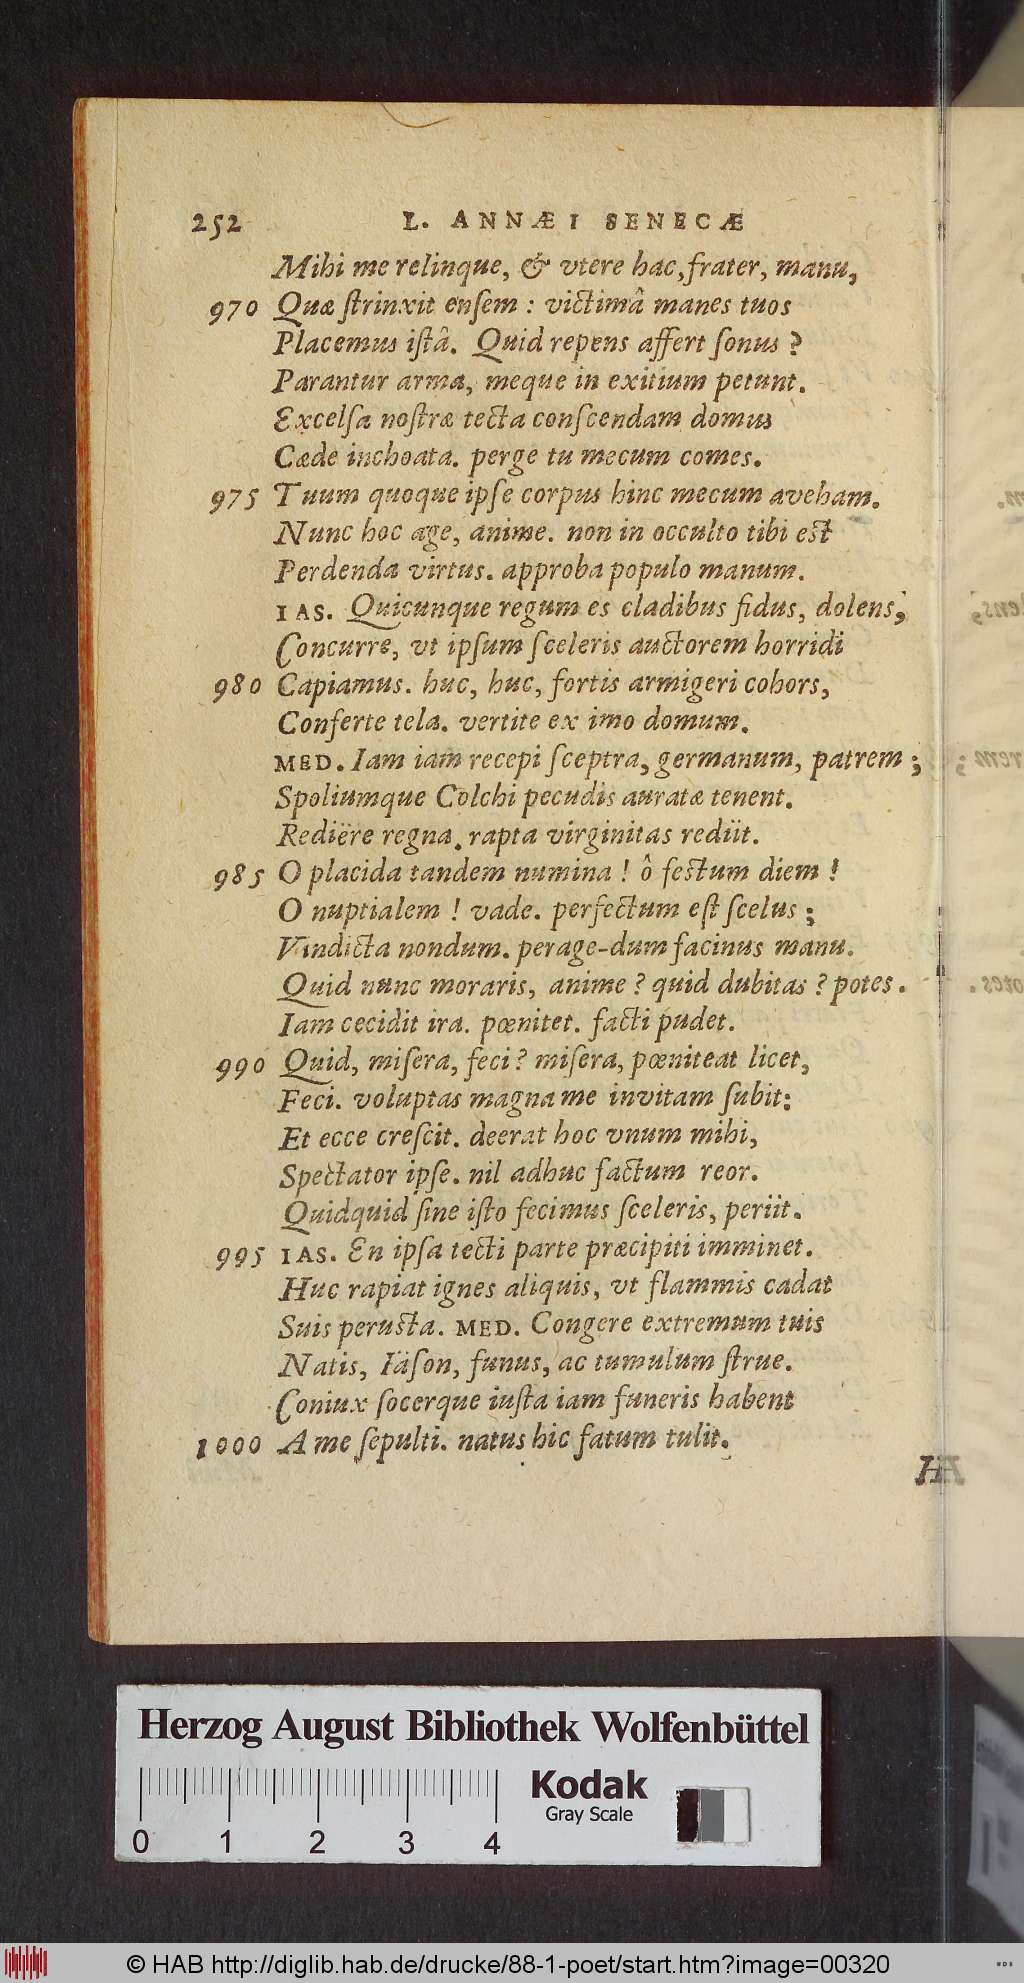 252 L. ANNÆI SENECÆ
Mihi me relinque, & vtere hac, frater, manu,
970 Quæ ſtrinxit enſem : victimâ manes tuos
Placemus iſtâ. Quid repens affert ſonus ?
Parantur arma, meque in exitium petunt.
Excelſa noſtræ tecta conſcendam domus
Cæde inchoata. perge tu mecum comes.
975 Tuum quoque ipſe corpus hinc mecum aveham.
Nunc hoc age, anime. non in occulto tibi eſt
Perdenda virtus. approba populo manum.
IAS. Quicunque regum es cladibus fidus, dolens,
Concurre, vt ipſum ſceleris auctorem horridi
980 Capiamus. huc, huc, fortis armigeri cohors,
Conferte tela. vertite ex imo domum.
MED. Iam iam recepi ſceptra, germanum, patrem ;
Spoliumque Colchi pecudis auratæ tenent.
Rediëre regna. rapta virginitas rediit.
985 O placida tandem numina ! ô feſtum diem !
O nuptialem ! vade. perfectum eſt ſcelus ;
Vindicta nondum. perage-dum facinus manu.
Quid nunc moraris, anime ? quid dubitas ? potes.
Iam cecidit ira. pœnitet. facti pudet.
990 Quid, miſera, feci ? miſera, pœniteat licet,
Feci. voluptas magna me invitam ſubit:
Et ecce creſcit. deerat hoc vnum mihi,
Spectator ipſe. nil adhuc factum reor.
Quidquid ſine iſto fecimus ſceleris, periit.
995 IAS. En ipſa tecti parte præcipiti imminet.
Huc rapiat ignes aliquis, vt flammis cadat
Suis peruſta. MED. Congere extremum tuis
Natis, Iäſon, funus, ac tumulum ſtrue.
Coniux ſocerque iuſta iam funeris habent
1000 A me ſepulti. natus hic fatum tulit.
Herzog August Bibliothek Wolfenbüttel
Kodak
Gray Scale
0 1 2 3 4
© HAB http://diglib.hab.de/drucke/88-1-poet/start.htm?image=00320